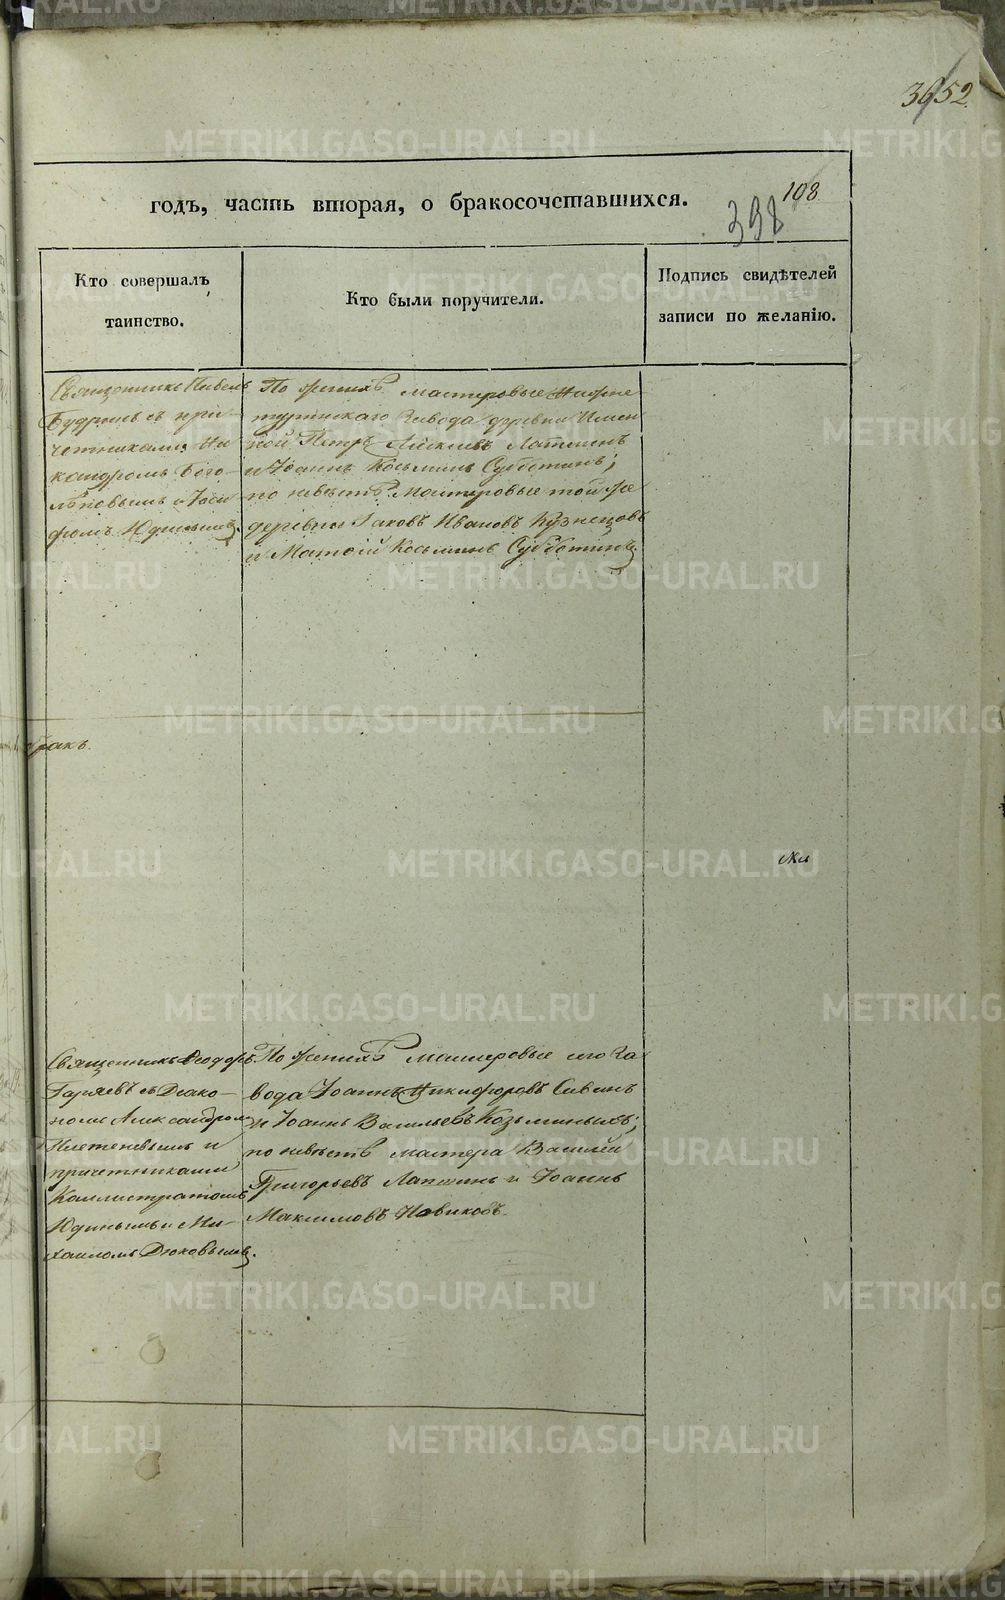 3652
108
398
годъ, часть вторая, о бракосочетавшихся.
Кто совершалъ
таинство.
Кто были поручители.
Подпись свидѣтелей
записи по желанію.
Священникъ Павелъ
Будринъ съ при-
четниками Ни-
кандромъ Бого-
лѣповымъ и Іоси-
фомъ Юдинымъ.
По женихѣ мастеровые Нижне-
туринскаго Завода деревни Имен
ной Петръ Лапшинъ
и Іоаннъ Косьминъ Субботинъ;
по невѣстѣ Мастеровые той же
деревни Іаковъ Ивановъ Кузнецовъ
и Матѳій Косьминъ Субботинъ.
бракъ.
Священникъ Ѳеодоръ
Гаряевъ съ Діако-
номъ Александромъ
Плетеневымъ и
причетниками
Каллистратомъ
Юдинымъ и Ми-
хаиломъ Дюковымъ.
По женихѣ мастеровые сего За
вода Іоаннъ Никифоровъ Сивинъ
и Іоаннъ Васильевъ Козьминыхъ;
по невѣстѣ мастера Василій
Григорьевъ Лапшинъ и Іоаннъ
Максимовъ Новиковъ.
METRIKI.GASO-URAL.RU